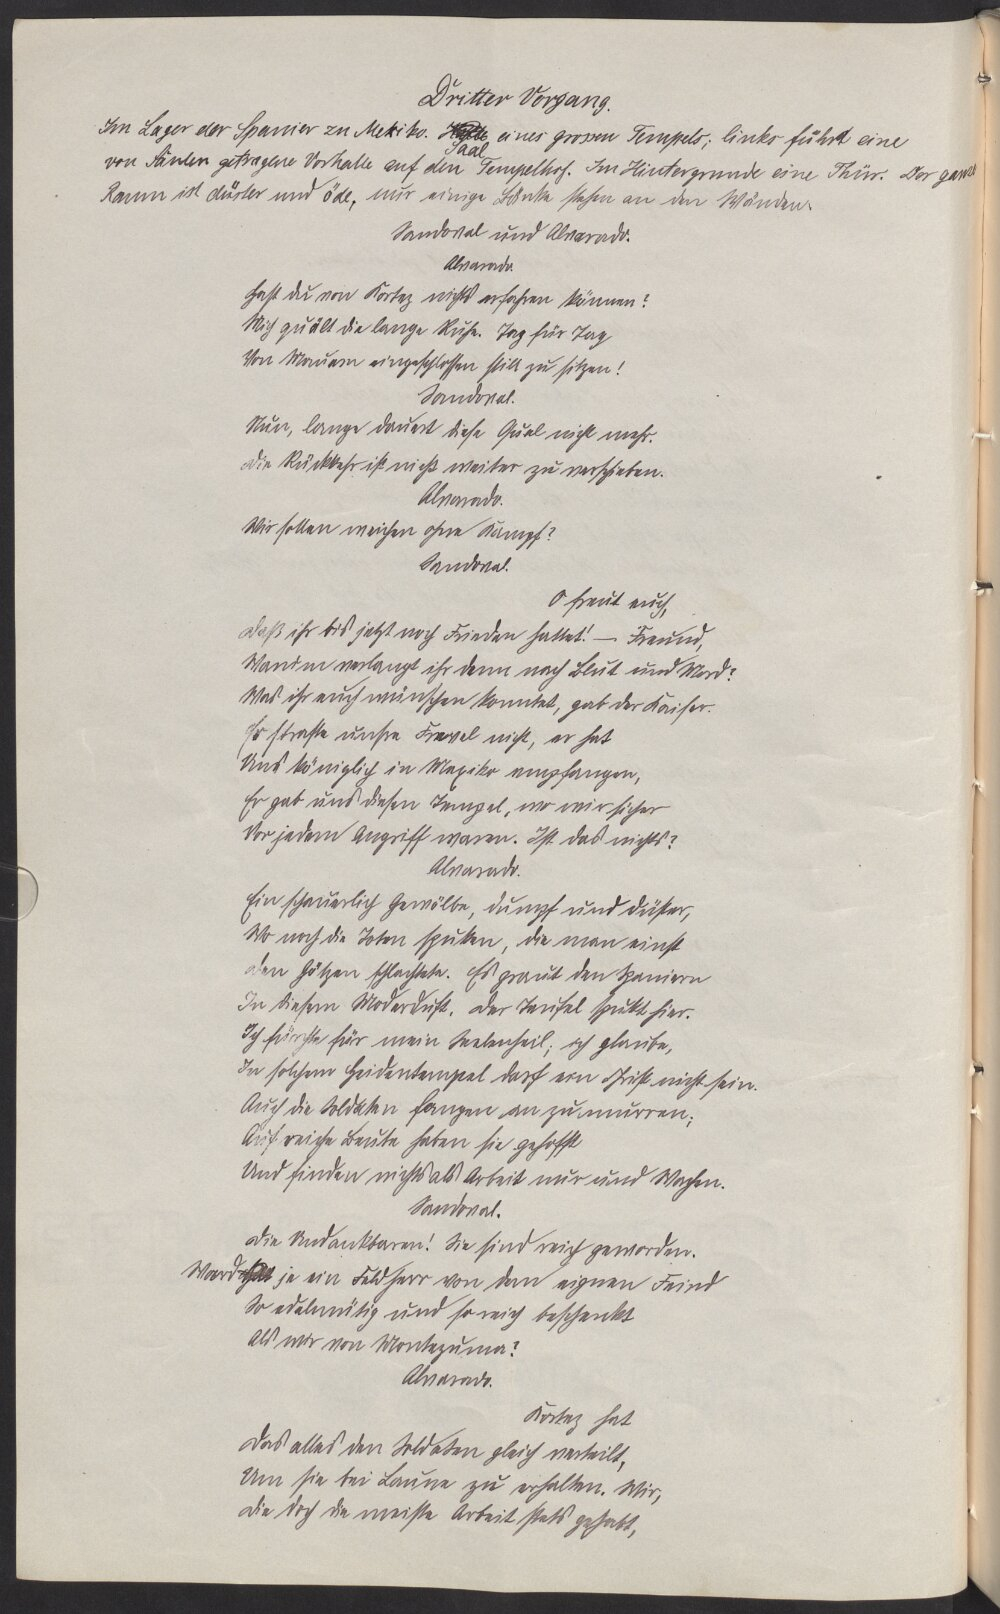 Dritter Vorgang.
Im Lager der Spanier zu Mexiko. Saal eines grossen Tempels; links führt eine
von Säulen getragene Vorhalle auf den Tempelhof. Im Hintergrunde eine Thür. Der ganze
Raum ist düster und öde, nur einige Bänke stehen an den Wänden.
Sandoval und Alvarado.
Alvarado
Hast du von Kortez nichts erfahren können?
Mich quält die lange Ruhe. Tag für Tag
Von Mauern eingeschlossen still zu sitzen!
Sandoval.
Nun, lange dauert diese Qual nicht mehr.
Die Rückkehr ist nicht weiter zu verschieben.
Alvarado.
Wir sollen weichen ohne Kampf?
Sandoval.
O freut euch,
Daß ihr bis jetzt noch Frieden hattet! — Freund,
Warum verlangt ihr denn nach Blut und Mord?
Was ihr euch wünschen konntet, gab der Kaiser.
Er strafte unsre Frevel nicht, er hat
Uns königlich in Mexiko empfangen,
Er gab uns diesen Tempel, wo wir sicher
Vor jedem Angriff waren. Ist das nichts?
Alvarado.
Ein schauerlich Gewölbe, dumpf und düster,
Wo noch die Toten spuken, die man einst
Den Götzen schlachtete. Es graut den Spaniern
In diesem Moderduft. Der Teufel spukt hier.
Ich fürchte für mein Seelenheil; ich glaube,
In solchem Heidentempel darf ein Christ nicht sein.
Auch die Soldaten fangen an zu murren;
Auf reiche Beute haben sie gehofft
Und finden nichts als Arbeit nur und Wachen.
Sandoval.
Die Undankbaren! Sie sind reich geworden.
Ward je ein Feldherr von dem eignen Feind
So edelmütig und so reich beschenkt
Als wir von Montezuma?
Alvarado.
Kortez hat
Das alles den Soldaten gleich verteilt,
Um sie bei Laune zu erhalten. Wir,
Die doch die meiste Arbeit stets gehabt,